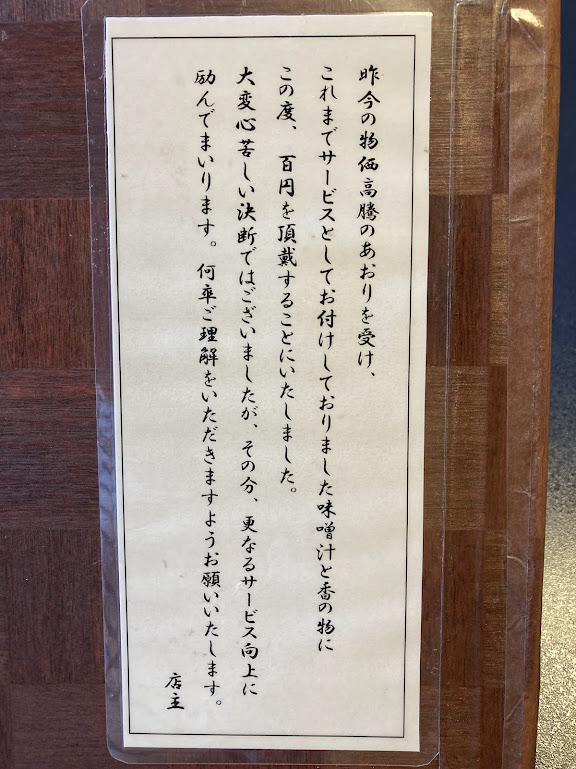 昨今の物価高騰のあおりを受け、
これまでサービスとしてお付けしておりました味噌汁と香の物に
この度、百円を頂戴することにいたしました。
大変心苦しい決断ではございましたが、その分、更なるサービス向上に
励んでまいります。何卒ご理解をいただきますようお願いいたします。
店主